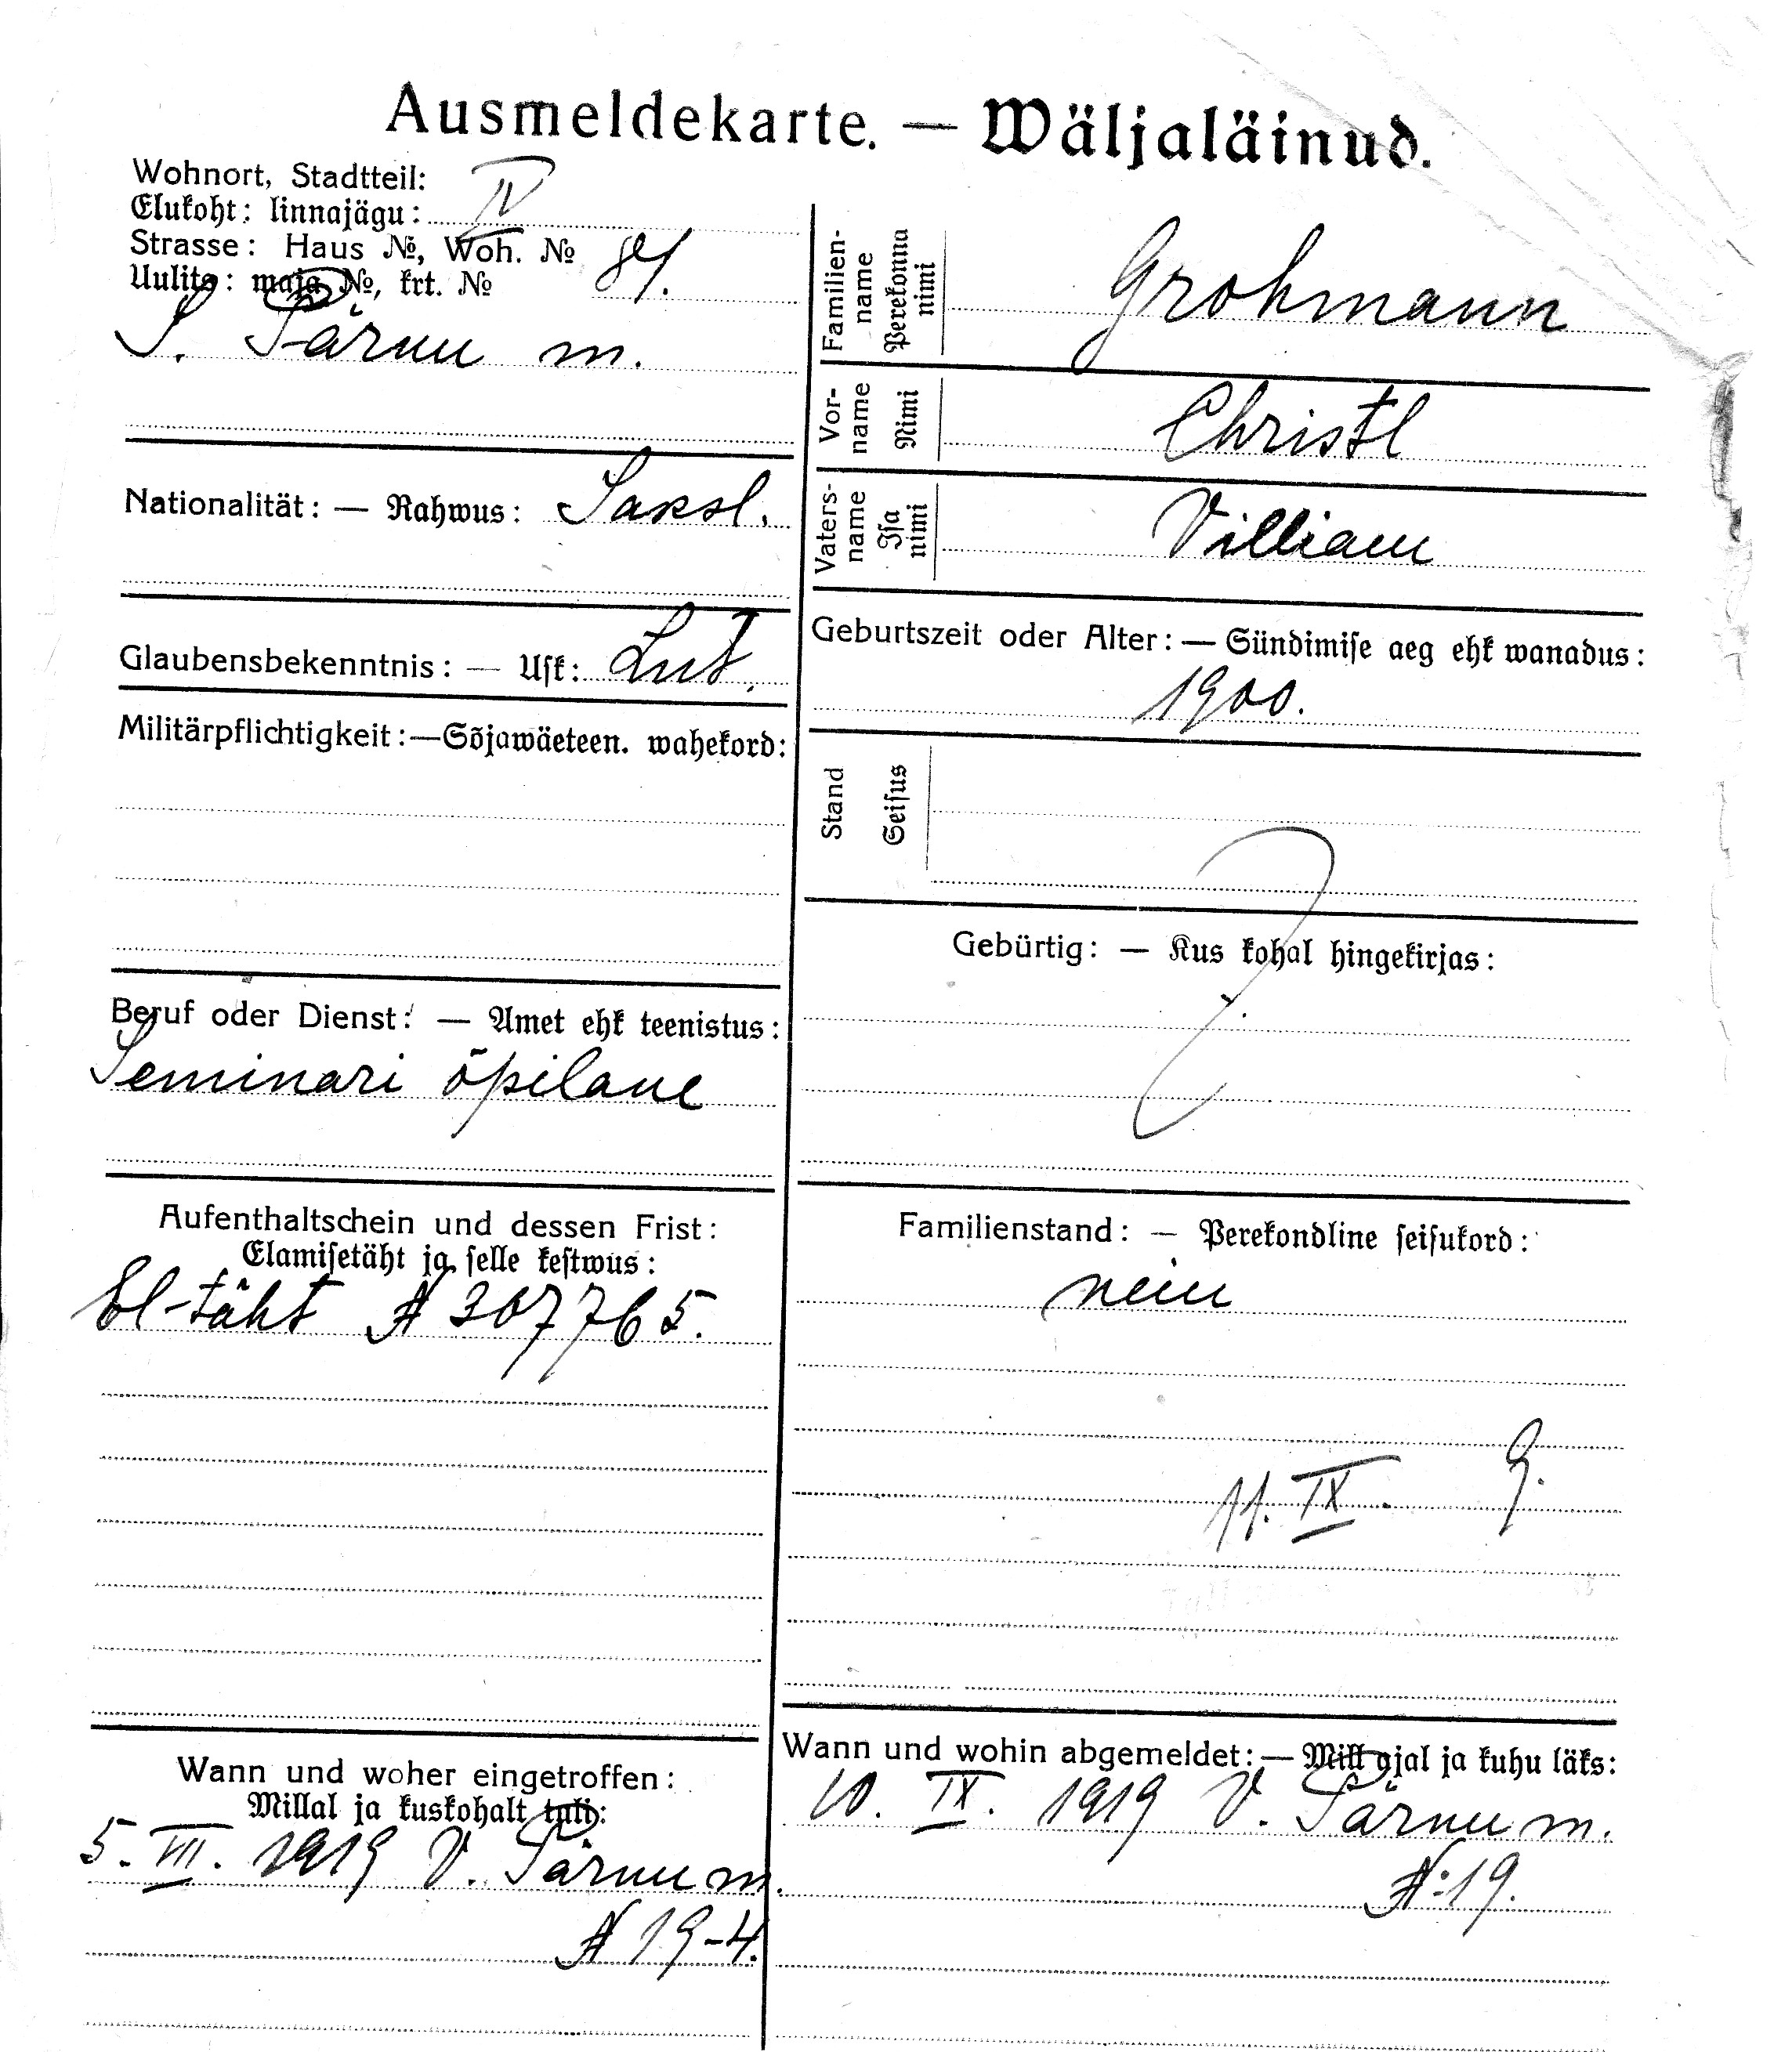 Ausmeldekarte. — Wäljaläinud.
Wohnort, Stadtteil: IV
Elukoht: linnajägu:
Strasse: Haus №, Woh. № 81.
Uulits: maja №, krt. №
S. Pärnu m.
Nationalität: — Rahwus: Saksl.
Glaubensbekenntnis: — Usk: Lut.
Militärpflichtigkeit:—Sõjawäeteen. wahekord:
Beruf oder Dienst: — Amet ehk teenistus:
Seminari õpilane
Aufenthaltschein und dessen Frist:
Elamisetäht ja selle kestwus:
El-täht № 307765.
Wann und woher eingetroffen:
Millal ja kuskohalt tuli:
5. VII. 1919 V. Pärnu m.
№ 19-4.
Familien-
name
Perekonna
nimi
Grohmann
Vor-
name
Nimi
Christl
Vaters-
name
Isa
nimi
Villiam
Geburtszeit oder Alter: — Sündimise aeg ehk wanadus:
1900.
Stand
Seisus
?
Gebürtig: — Kus kohal hingekirjas:
Familienstand: — Perekondline seisukord:
nein
11. IX. 9.
Wann und wohin abgemeldet: — Mill ajal ja kuhu läks:
10. IX. 1919 V. Pärnu m.
№: 19.